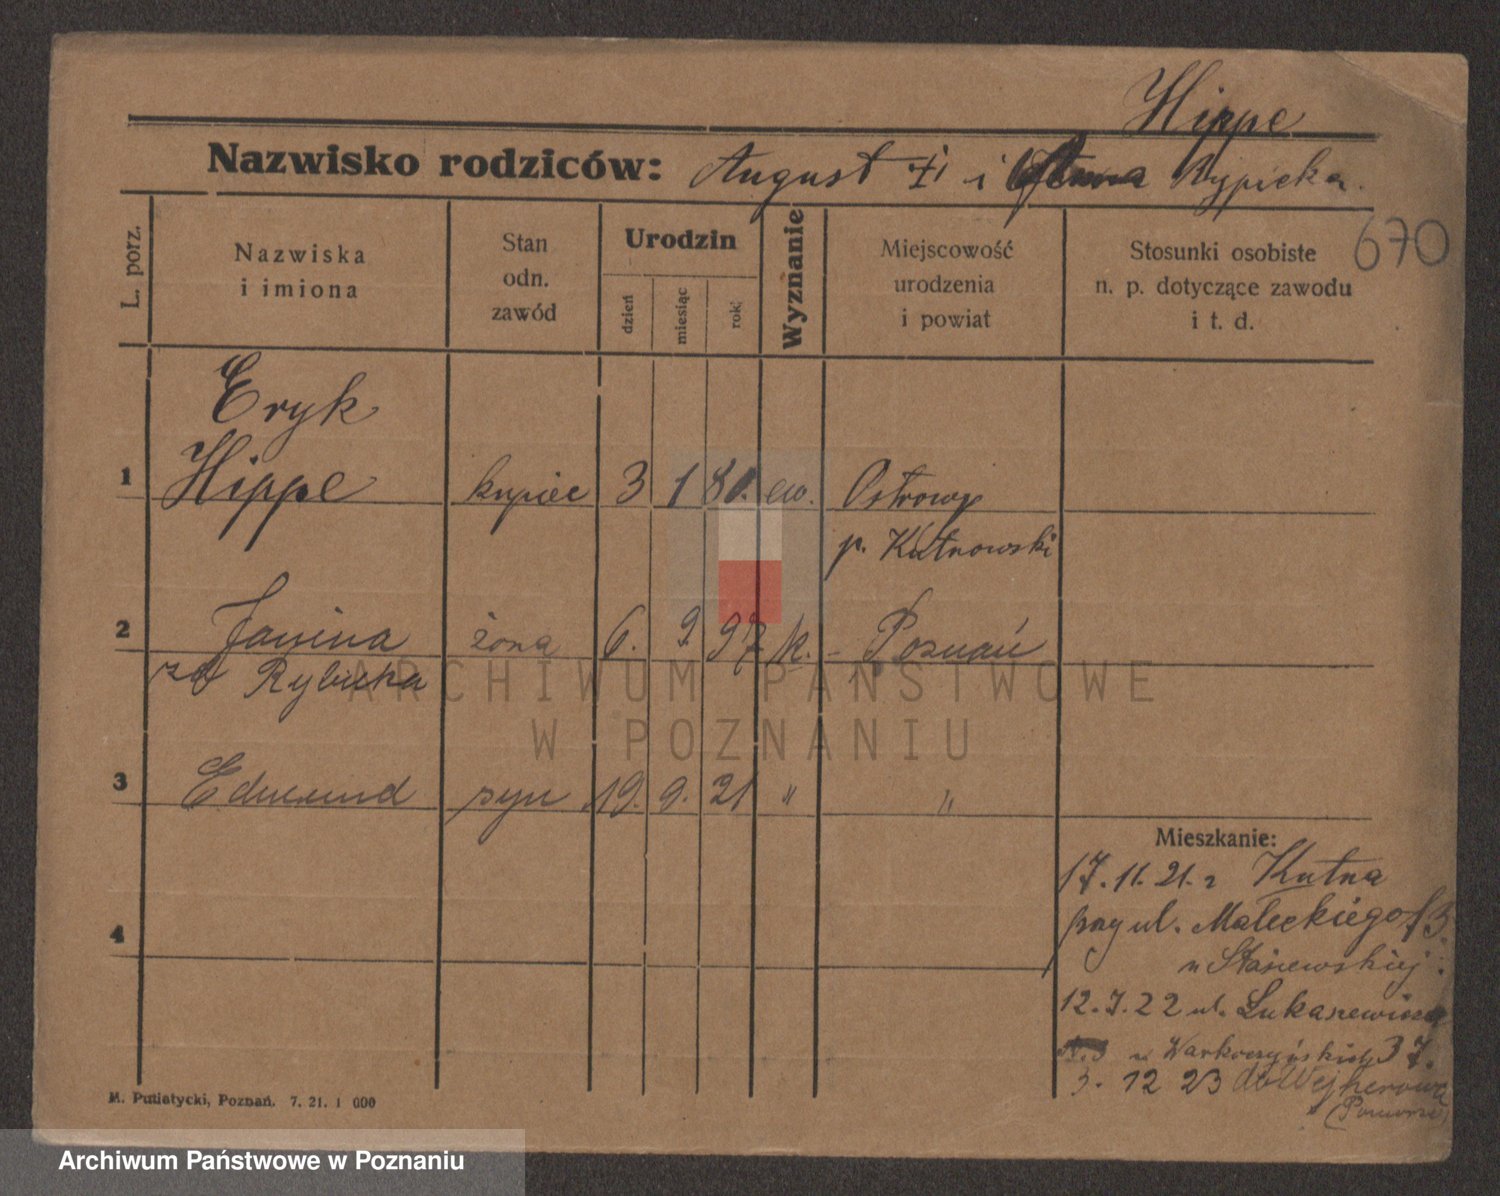 Hippe
Nazwisko rodziców: August i Rypicka
670
L. porz.
Nazwiska i imiona
Stan odn. zawód
Urodzin
dzień
miesiąc
rok
Wyznanie
Miejscowość urodzenia i powiat
Stosunki osobiste n. p. dotyczące zawodu i t. d.
Eryk
1 Hippe kupiec 3 1 80. ew. Ostrowy
p. Kutnowski
2 Janina żona 6. 9. 97 k. - Poznań
zd Rybicka
3 Edmund syn 19. 9. 21 " "
4
Mieszkanie:
17.11.21. z Kutna
przy ul. Małeckiego 13.
u Stasiewskiej
12.7.22 ul. Łukaszewicza
u Warkoczyńskiej 37.
3. 12 23 do Wejherowa
M. Putiatycki, Poznań. 7. 21. 1 000
ARCHIWUM PAŃSTWOWE
W POZNANIU
Archiwum Państwowe w Poznaniu